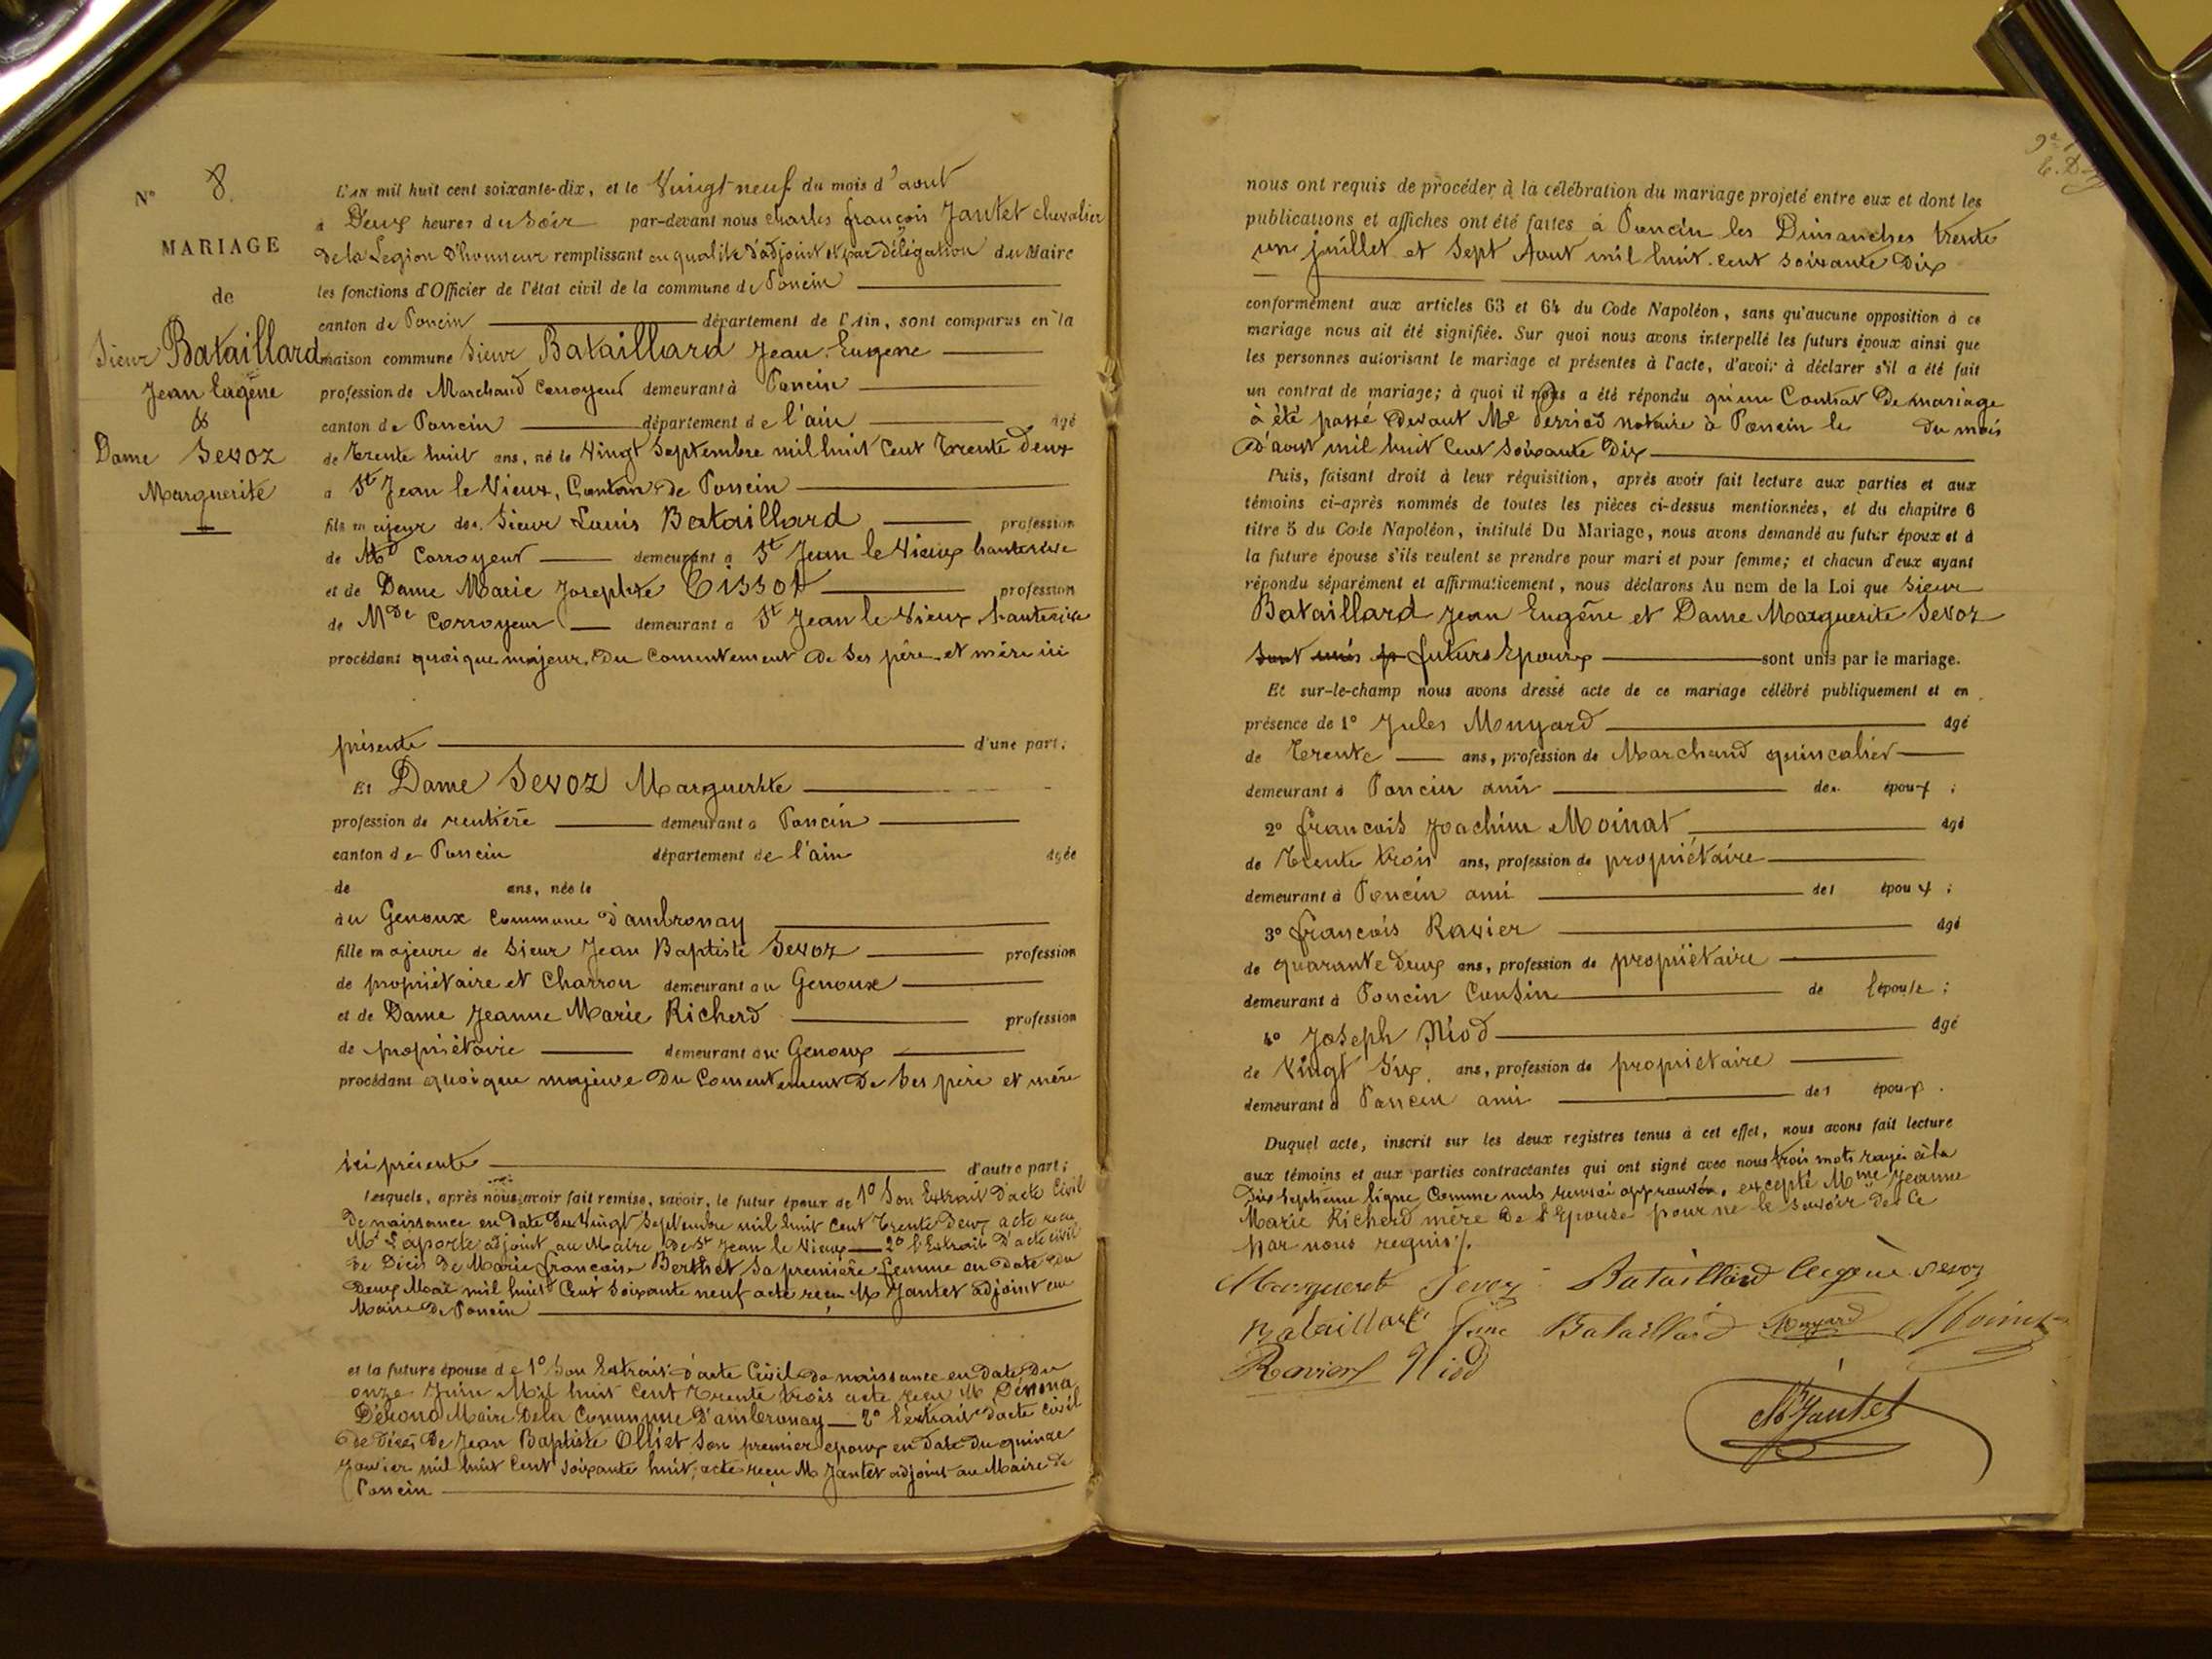 N° 8.
MARIAGE
de
Sieur Bataillard
Jean Eugène
&
Dame Sevoz
Marguerite
L'AN mil huit cent soixante-dix, et le Vingt neuf du mois d'aout
à Deux heures du Soir par-devant nous Charles françois Jantet chevalier
de la Legion d'honneur remplissant en qualité d'adjoint et par délégation du Maire
les fonctions d'Officier de l'état civil de la commune de Poncin
canton de Poncin département de l'Ain, sont comparus en la
maison commune Sieur Bataillard Jean Eugene
profession de Marchand Corroyeur demeurant à Poncin
canton de Poncin département de l'ain âgé
de Trente huit ans, né le Vingt Septembre mil huit Cent Trente Deux
à St Jean le Vieux, Canton de Poncin
fils majeur de Sieur Louis Bataillard profession
de Md Corroyeur demeurant à St Jean le Vieux hauterive
et de Dame Marie Josephte Tissot profession
de Mde Corroyeur demeurant à St Jean le Vieux hauterive
procédant quoique majeur, du Consentement de Ses père et mère ici
présents d'une part;
Et Dame Sevoz Marguerite
profession de rentière demeurant à Poncin
canton de Poncin département de l'ain âgée
de ans, née le
au Genoux Commune d'ambronay
fille majeure de Sieur Jean Baptiste Sevoz profession
de propriétaire et Charron demeurant au Genoux
et de Dame Jeanne Marie Richerd profession
de propriétaire demeurant au Genoux
procédant quoique majeure Du Consentement De Ses père et mère
ici présents d'autre part;
Lesquels, après nous avoir fait remise, savoir, le futur époux de 1° Son Extrait d'acte Civil
De naissance en date du Vingt Septembre mil huit Cent Trente Deux acte recu
Mr Laporte adjoint au Maire De St Jean le Vieux 2° l'Extrait D'acte civil
de Décès De Marie françoise Berthet Sa première femme en date du
Deux Mai mil huit Cent Soixante neuf acte reçu M Jantet adjoint au
Maire De Poncin
et la future épouse de 1° Son Extrait d'acte Civil de naissance en date du
onze Juin Mil huit Cent Trente trois acte reçu M
Maire De la Commune D'ambronay 2° l'extrait d'acte civil
de décès De Jean Baptiste Olliet Son premier époux en date du quinze
Janvier mil huit Cent Soixante huit, acte reçu M Jantet adjoint au Maire de
Poncin
nous ont requis de procéder à la célébration du mariage projeté entre eux et dont les
publications et affiches ont été faites à Poncin les Dimanches trente
un juillet et Sept Aout mil huit cent Soixante Dix
conformément aux articles 63 et 64 du Code Napoléon, sans qu'aucune opposition à ce
mariage nous ait été signifiée. Sur quoi nous avons interpellé les futurs époux ainsi que
les personnes autorisant le mariage et présentes à l'acte, d'avoir à déclarer s'il a été fait
un contrat de mariage; à quoi il nous a été répondu qu'un Contrat De mariage
à été passé Devant Me Perriod notaire à Poncin le du mois
D'aout mil huit Cent Soixante Dix
Puis, faisant droit à leur réquisition, après avoir fait lecture aux parties et aux
témoins ci-après nommés de toutes les pièces ci-dessus mentionnées, et du chapitre 6
titre 5 du Code Napoléon, intitulé Du Mariage, nous avons demandé au futur époux et à
la future épouse s'ils veulent se prendre pour mari et pour femme; et chacun d'eux ayant
répondu séparément et affirmativement, nous déclarons Au nom de la Loi que Sieur
Bataillard Jean Eugène et Dame Marguerite Sevoz
Sont unis futurs Epoux sont unis par le mariage.
Et sur-le-champ nous avons dressé acte de ce mariage célébré publiquement et en
présence de 1° Jules Monyard âgé
de Trente ans, profession de Marchand quincalier
demeurant à Poncin amis des époux;
2° francois Joachim Moinat âgé
de Trente trois ans, profession de propriétaire
demeurant à Poncin ami des époux;
3° françois Ravier âgé
de quarante Deux ans, profession de propriétaire
demeurant à Poncin Cousin de l'épouse;
4° Joseph Niod âgé
de Vingt Six ans, profession de propriétaire
demeurant à Poncin ami des époux.
Duquel acte, inscrit sur les deux registres tenus à cet effet, nous avons fait lecture
aux témoins et aux parties contractantes qui ont signé avec nous trois mots rayés à la
Dix Septième ligne Comme nuls renvoi approuvés, excepté Mme Jeanne
Marie Richerd mère De l'Epouse pour ne le Savoir De Ce
par nous requis.
Margueret Sevoz Bataillard Eugène Sevoz
Bataillard fme Bataillard Monyard Moinat
Ravier Niod
Ch Jantet